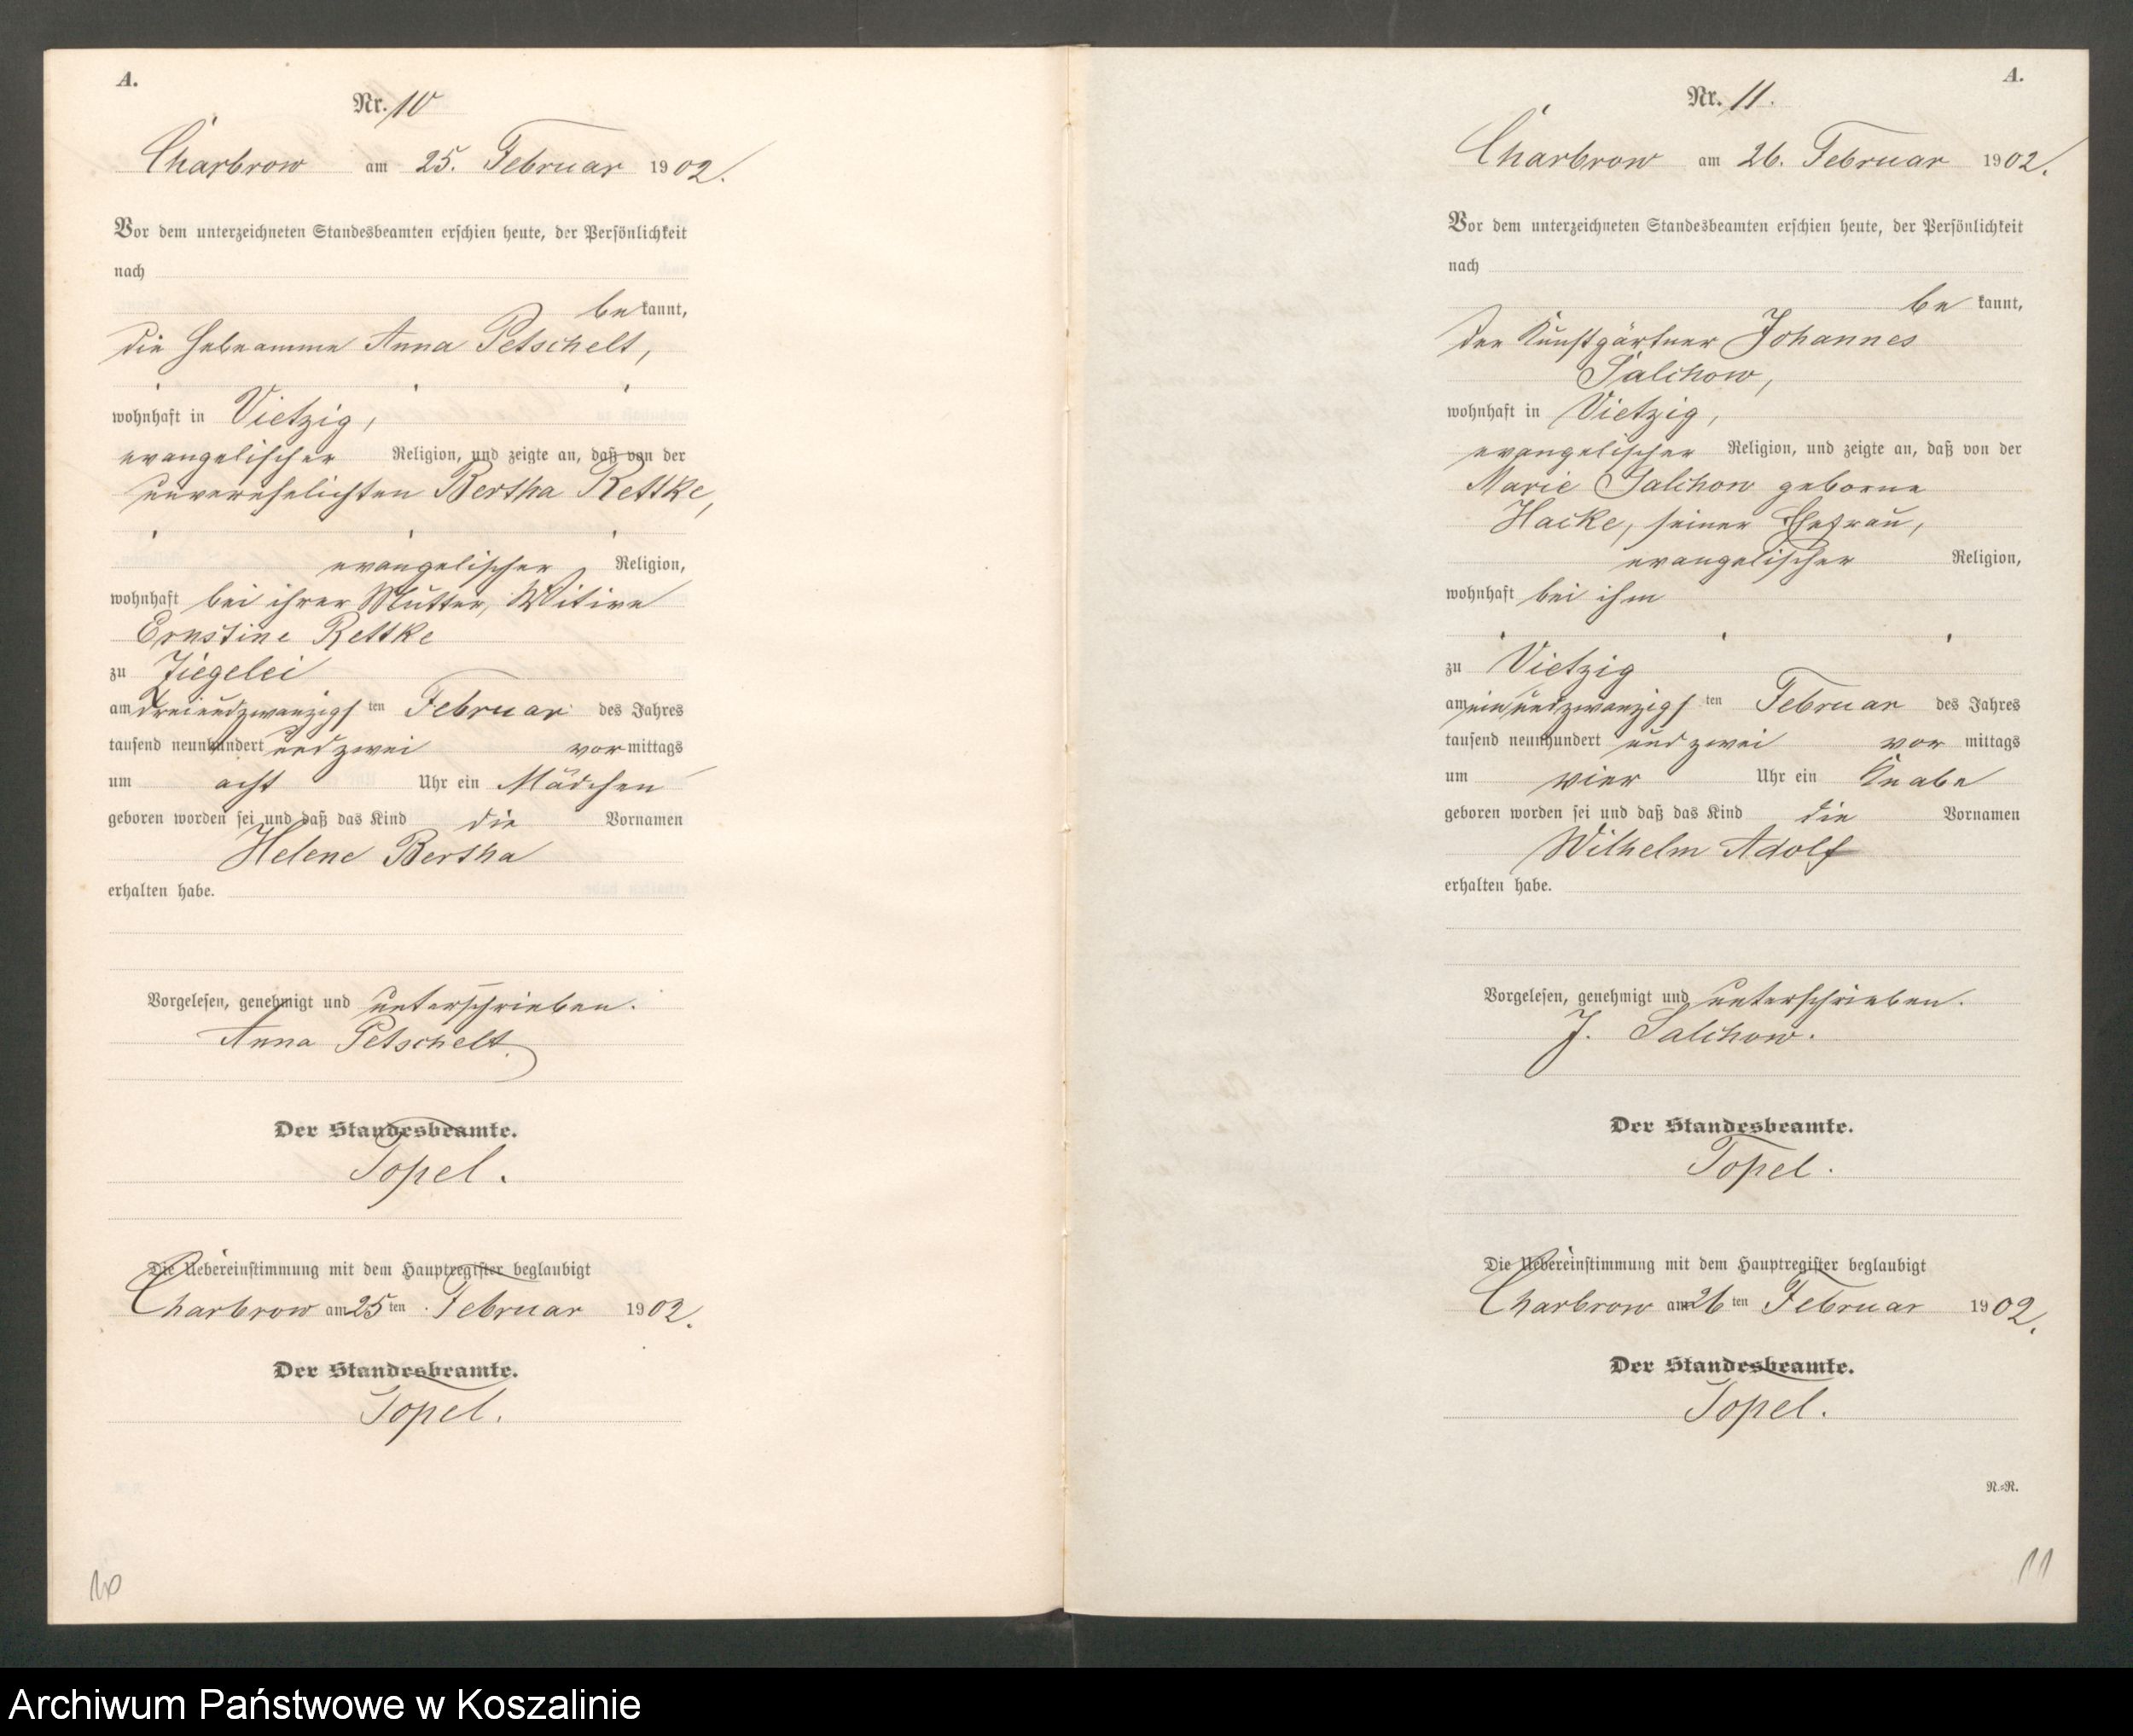 A.
Nr. 10
Charbrow am 25. Februar 1902.
Vor dem unterzeichneten Standesbeamten erschien heute, der Persönlichkeit
nach
bekannt,
die Hebeamme Anna Petschelt,
wohnhaft in Vietzig,
evangelischer Religion, und zeigte an, daß von der
unverehelichten Bertha Rettke,
evangelischer Religion,
wohnhaft bei ihrer Mutter, Witwe
Ernstine Rettke
zu Ziegelei
am dreiundzwanzigsten Februar des Jahres
tausend neunhundert und zwei vormittags
um acht Uhr ein Mädchen
geboren worden sei und daß das Kind die Vornamen
Helene Bertha
erhalten habe.
Vorgelesen, genehmigt und unterschrieben.
Anna Petschelt.
Der Standesbeamte.
Topel.
Die Uebereinstimmung mit dem Hauptregister beglaubigt
Charbrow am 25ten Februar 1902.
Der Standesbeamte.
Topel.
10
A.
Nr. 11.
Charbrow am 26. Februar 1902.
Vor dem unterzeichneten Standesbeamten erschien heute, der Persönlichkeit
nach
bekannt,
der Kunstgärtner Johannes
Salchow,
wohnhaft in Vietzig,
evangelischer Religion, und zeigte an, daß von der
Marie Salchow geborne
Hacke, seiner Ehefrau,
evangelischer Religion,
wohnhaft bei ihm
zu Vietzig
am einundzwanzigsten Februar des Jahres
tausend neunhundert und zwei vormittags
um vier Uhr ein Knabe
geboren worden sei und daß das Kind die Vornamen
Wilhelm Adolf
erhalten habe.
Vorgelesen, genehmigt und unterschrieben.
J. Salchow.
Der Standesbeamte.
Topel.
Die Uebereinstimmung mit dem Hauptregister beglaubigt
Charbrow am 26ten Februar 1902.
Der Standesbeamte.
Topel.
N.-R.
11
Archiwum Państwowe w Koszalinie